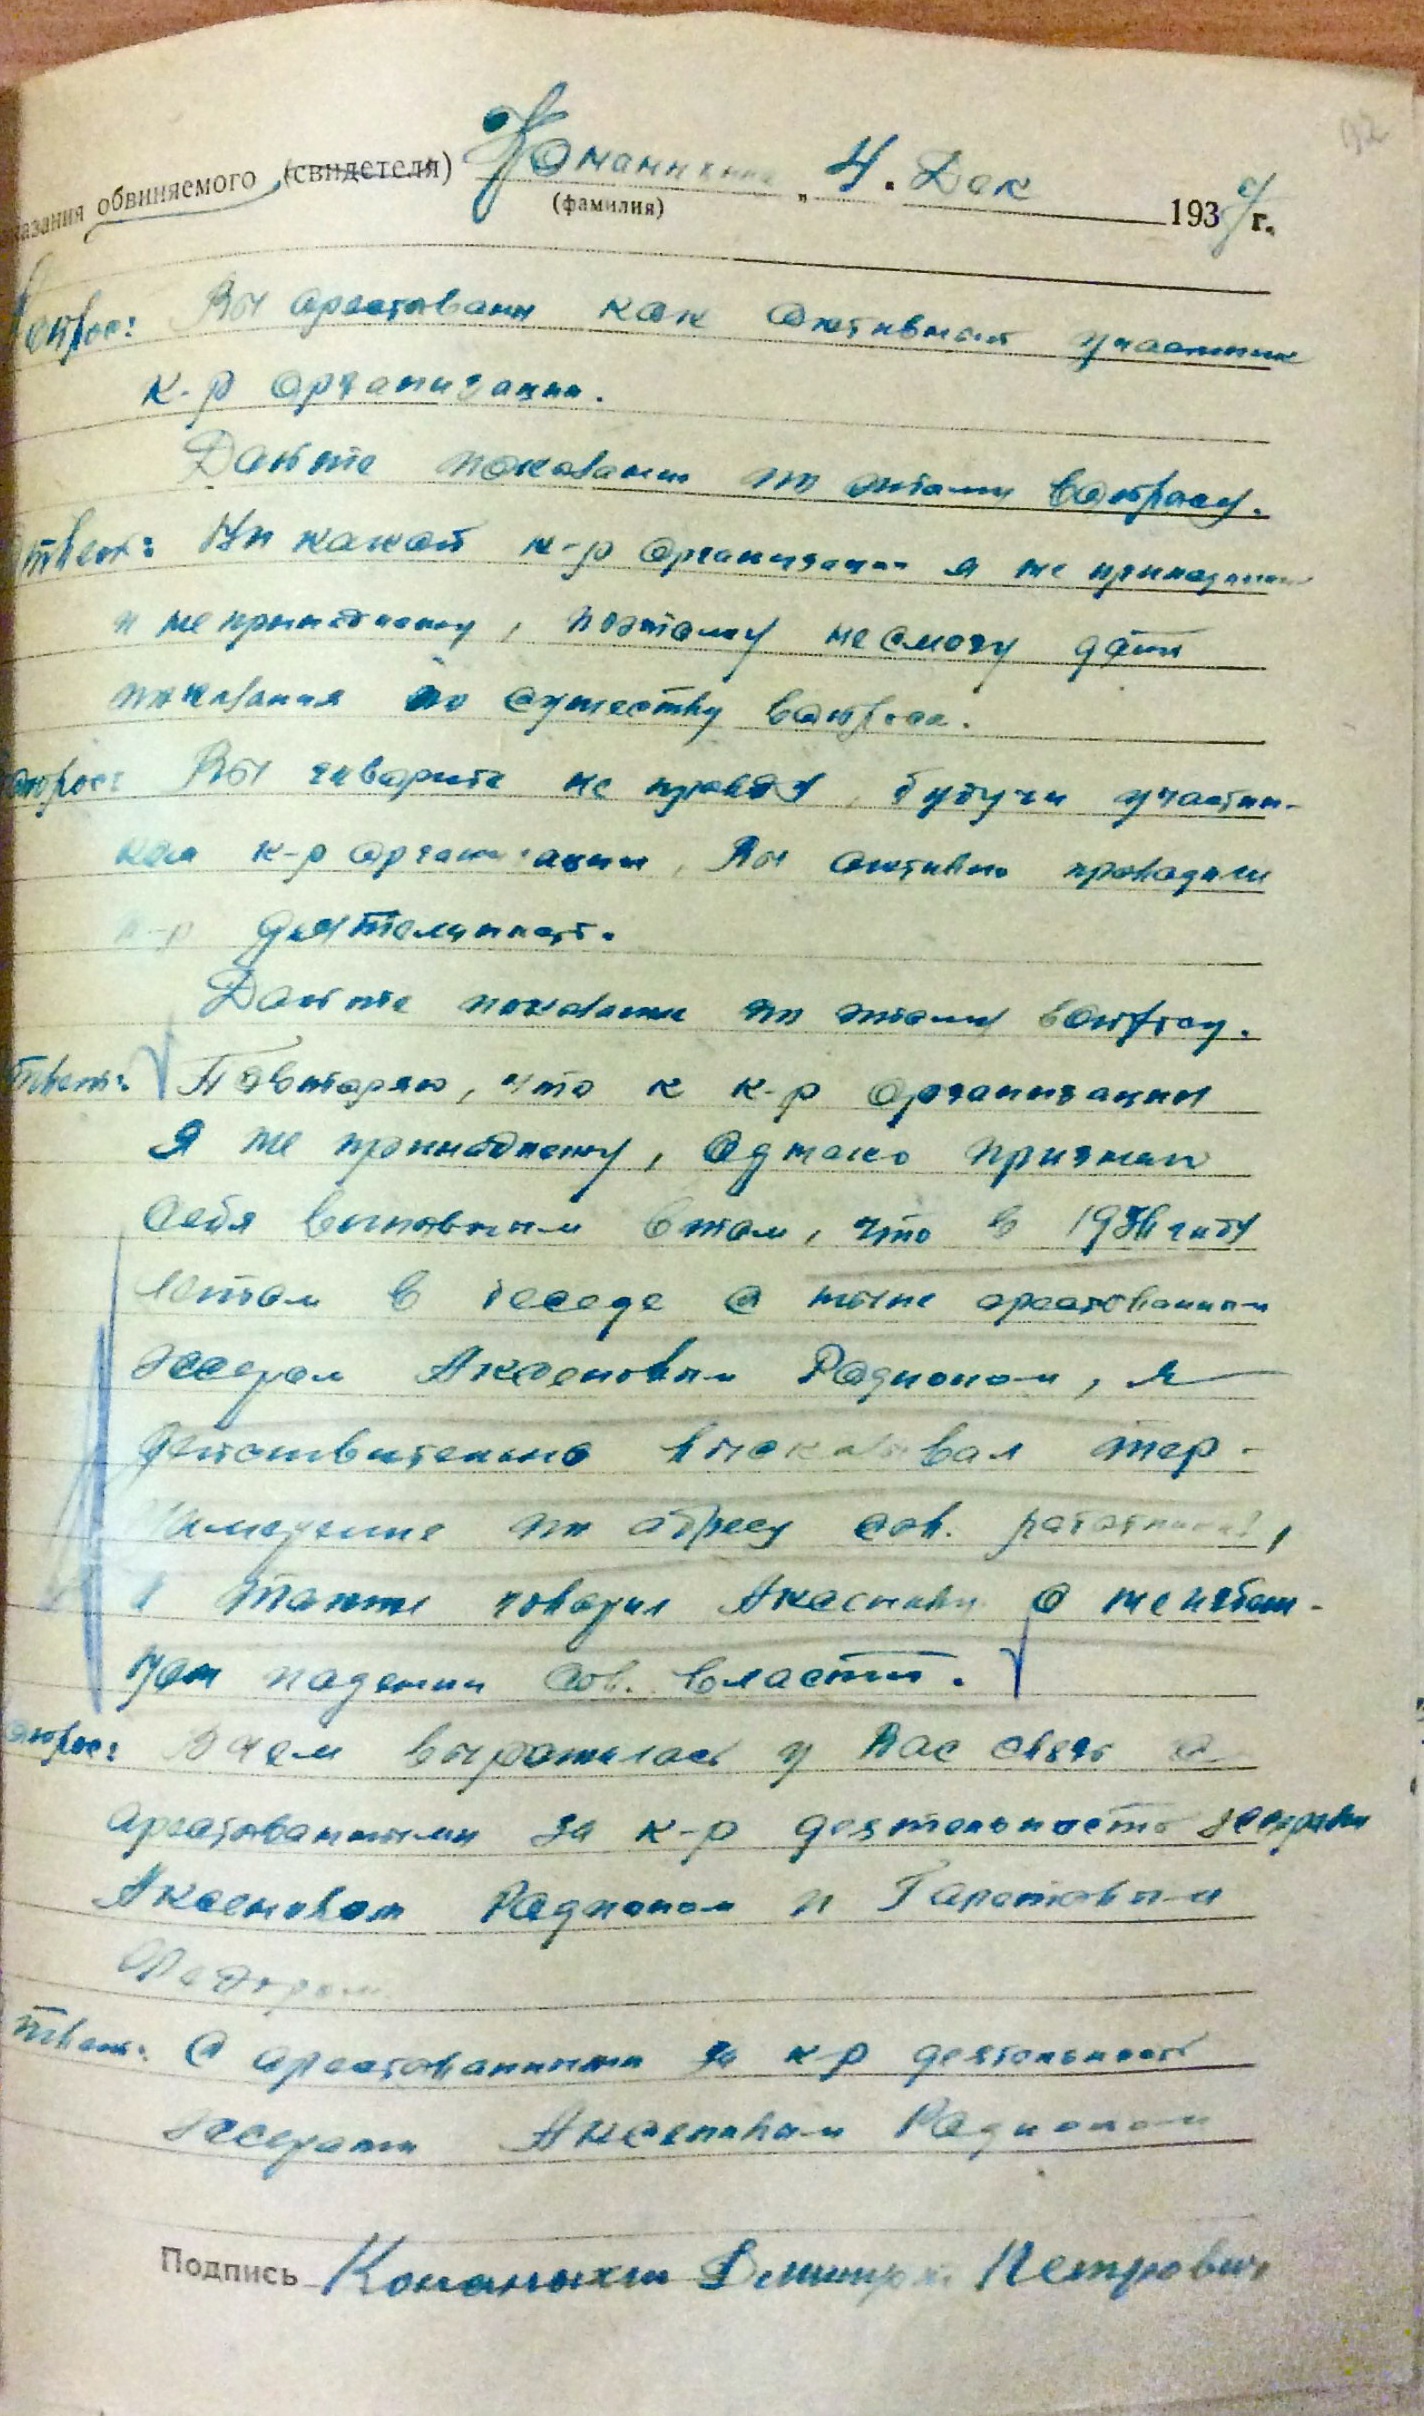 92
казания обвиняемого (свидетеля) Конанихина „ 4 " Дек 1937 г.
(фамилия)
Вопрос: Вы арестованы как активный участник
к-р организации.
Дайте показания по этому вопросу.
Ответ: Ни какой к-р организации я не принадлежал
и не принадлежу, поэтому не смогу дать
показания по существу вопроса.
Вопрос: Вы говорите не правду, будучи участни-
ком к-р организации, Вы активно проводили
к-р деятельность.
Дайте показания по этому вопросу.
Ответ: Повторяю, что к к-р организации
я не принадлежу, однако признаю
себя виновным в том, что в 1936 году
летом в беседе с ныне арестованным
эсером Аксеновым Радионом, я
действительно высказывал тер-
намерение по адресу сов. работников,
а также говорил Аксенову о неизбеж-
ном падении сов. власти.
Вопрос: В чем выразилась у Вас связь с
арестованными за к-р деятельность эсерами
Аксеновом Радионом и Гаретовым
Федором
Ответ: С арестованными за к-р деятельность
эсерами Аксеновым Радионом
Подпись Конаныхин Дмитрий Петрович